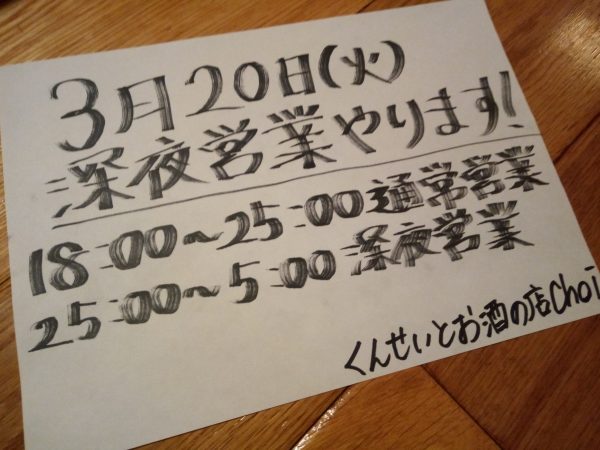 3月20日(火)
深夜営業やります!
18:00~25:00通常営業
25:00~5:00深夜営業
くんせいとお酒の店Choi